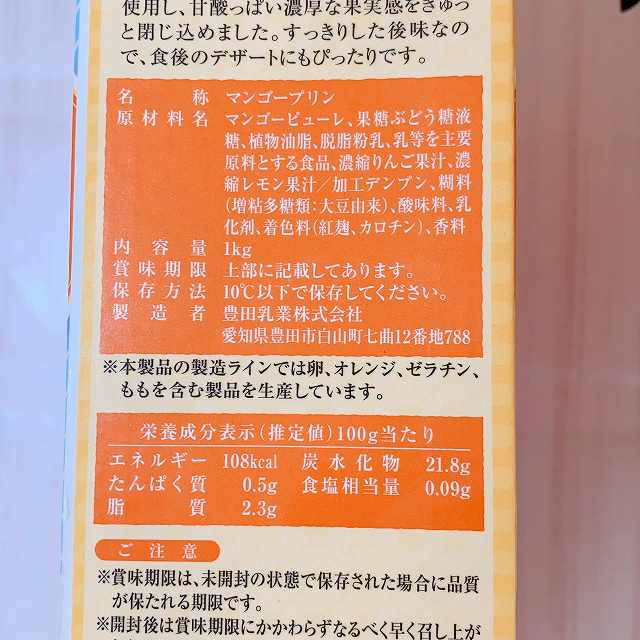 使用し、甘酸っぱい濃厚な果実感をぎゅっ
と閉じ込めました。すっきりした後味なの
で、食後のデザートにもぴったりです。
名称 マンゴープリン
原材料名 マンゴーピューレ、果糖ぶどう糖液
糖、植物油脂、脱脂粉乳、乳等を主要
原料とする食品、濃縮りんご果汁、濃
縮レモン果汁／加工デンプン、糊料
(増粘多糖類：大豆由来)、酸味料、乳
化剤、着色料(紅麹、カロチン)、香料
内容量 1kg
賞味期限 上部に記載してあります。
保存方法 10℃以下で保存してください。
製造者 豊田乳業株式会社
愛知県豊田市白山町七曲12番地788
※本製品の製造ラインでは卵、オレンジ、ゼラチン、
ももを含む製品を生産しています。
栄養成分表示(推定値)100g当たり
エネルギー 108kcal 炭水化物 21.8g
たんぱく質 0.5g 食塩相当量 0.09g
脂質 2.3g
ご注意
※賞味期限は、未開封の状態で保存された場合に品質
が保たれる期限です。
※開封後は賞味期限にかかわらずなるべく早く召し上が